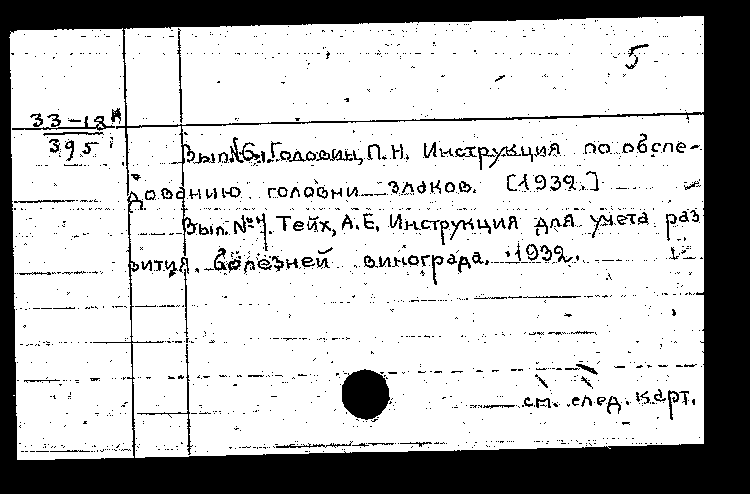 5
33-18к
395
Вып. №6. Головин, П.Н. Инструкция по обсле-
дованию головни злаков. [1932.]
Вып. №7. Тейх, А.Е. Инструкция для учета раз
вития болезней винограда. 1932.
см. след. карт.